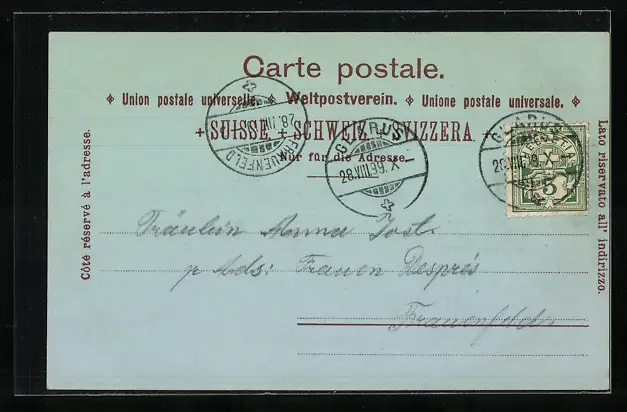 Carte postale.
Union postale universelle. Weltpostverein. Unione postale universale.
SUISSE. SCHWEIZ. SVIZZERA
Nur für die Adresse.
Côté réservé à l'adresse.
Lato riservato all' indirizzo.
FRAUENFELD
GLARUS
28.VIII.99. X
GLARUS
28.VIII.99. X
5
Fräulein Anna Jost.
p Ads: Frauen Després
Frauenfeld